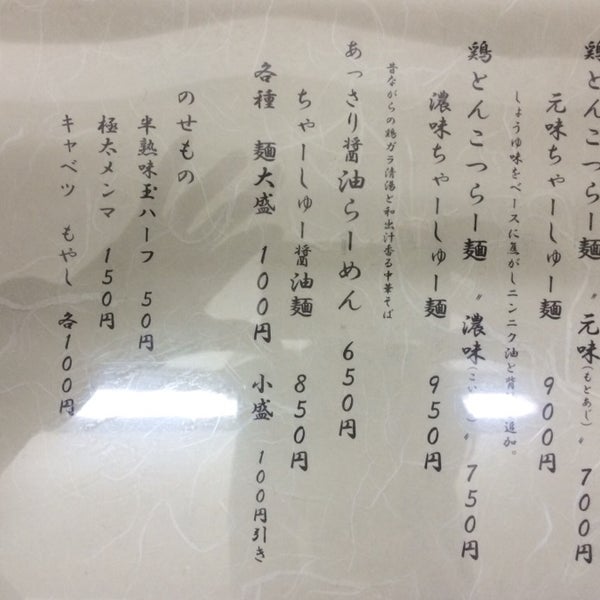 鶏とんこつらー麺 〝元味(もとあじ)〟 700円
元味ちゃーしゅー麺 900円
しょうゆ味をベースに焦がしニンニク油と背 追加。
鶏とんこつらー麺 〝濃味(こい 〟 750円
濃味ちゃーしゅー麺 950円
昔ながらの鶏ガラ清湯と和出汁香る中華そば
あっさり醤油らーめん 650円
ちゃーしゅー醤油麺 850円
各種 麺大盛 100円 小盛 100円引き
のせもの
半熟味玉ハーフ 50円
極太メンマ 150円
キャベツ もやし 各100円